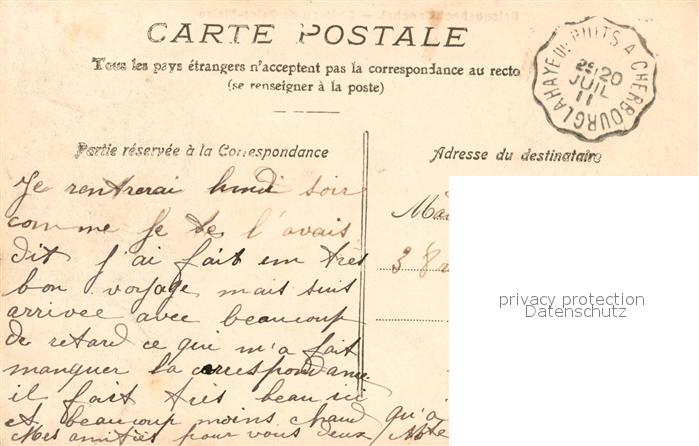 CARTE POSTALE
Tous les pays étrangers n'acceptent pas la correspondance au recto
(se renseigner à la poste)
LA HAYE DU PUITS A CHERBOURG
2E 20
JUIL
11
Partie réservée à la Correspondance
Je rentrerai lundi soir
comme je te l'avais
dit j'ai fait un tres
bon voyage mais suis
arrivee avec beaucoup
de retard ce qui m'a fait
manquer la correspondance
il fait très beau ici
et beaucoup moins chaud qu'à
Mes amitiés pour vous deux
Adresse du destinataire
Mad
38
privacy protection
Datenschutz